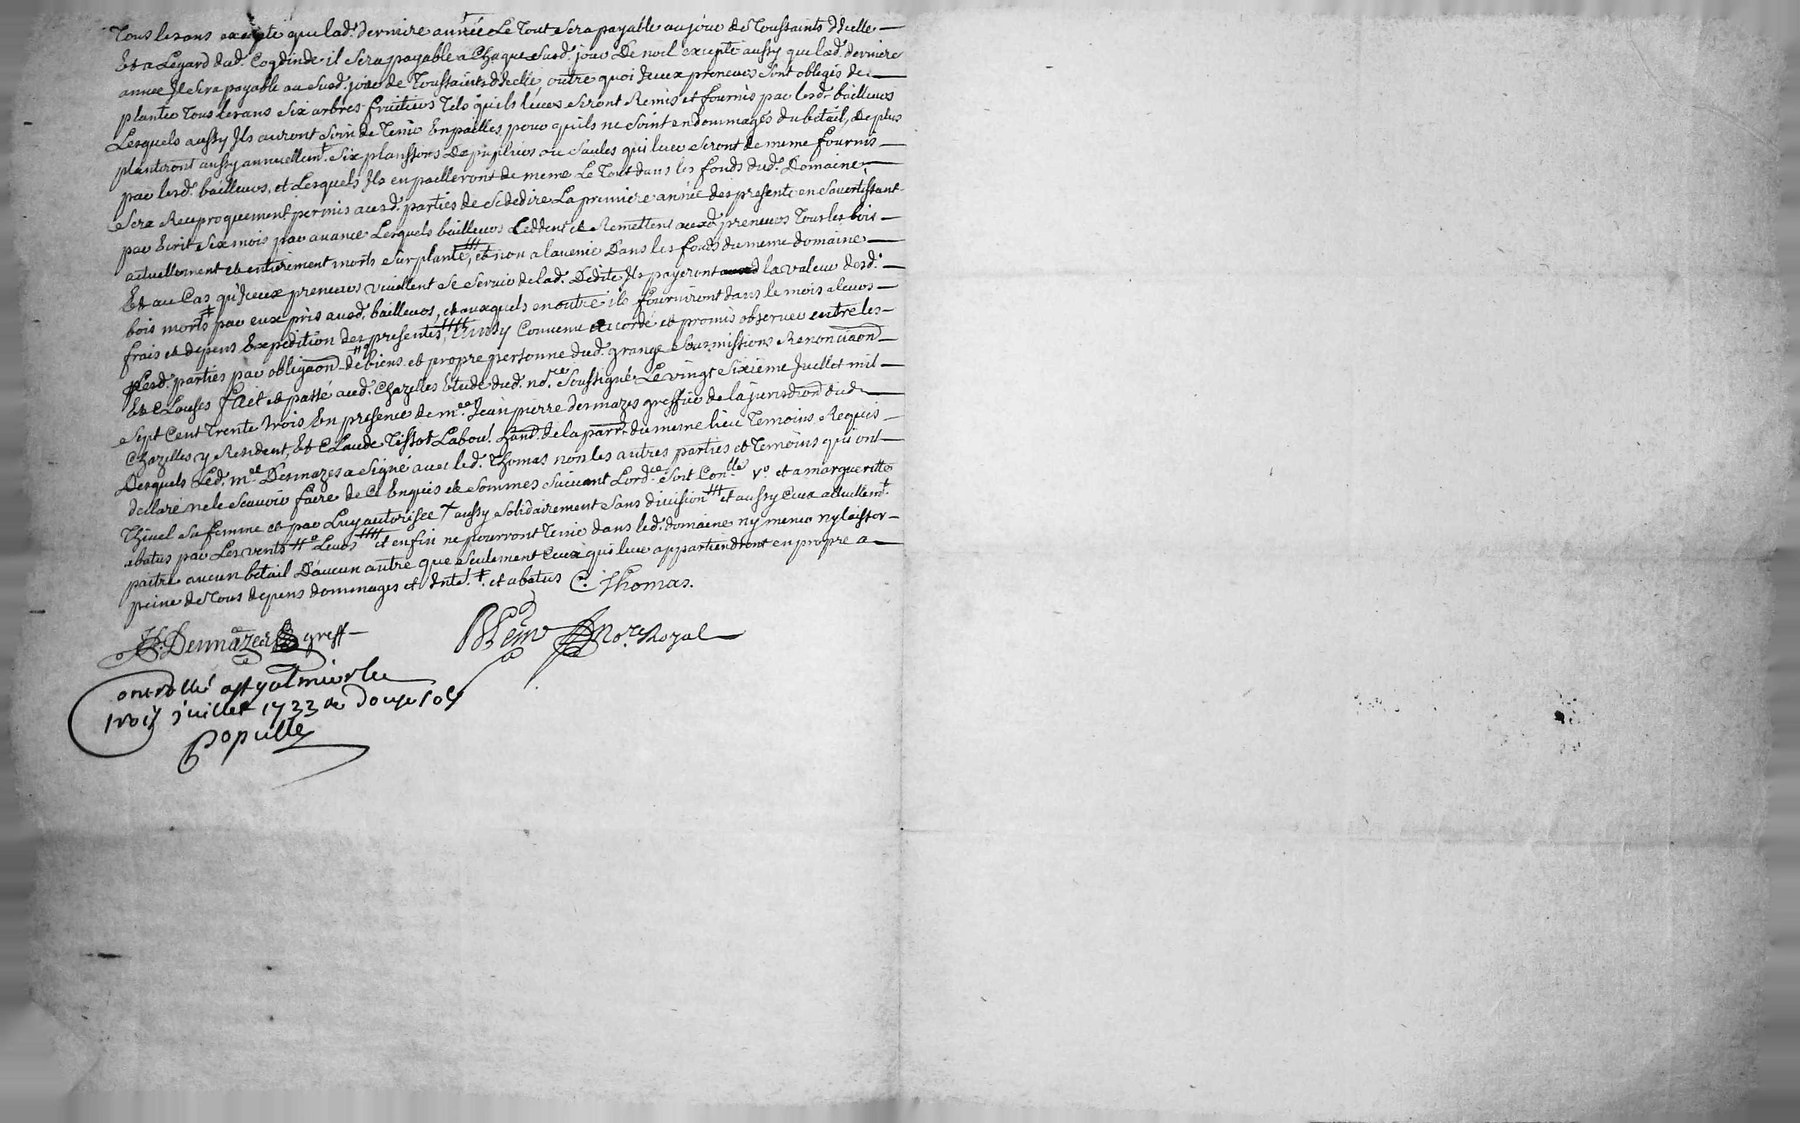 Tous lesans excepté que lad.e derniere année Le Tout sera payable au jour de Toussaints d'Jcelle
Et a Legard dud. Coqdinde il Sera payable a Chaque Susd. jour De noel excepté aussy que lad. derniere
annee Jl Sera payable au Susd. jour de Toussaints d'Jcelle, outre quoi Jceux preneurs Sont obligés de
planter Tous lesans Six arbres fruitiers Tels quils leurs Seront Remis et fournis par lesd. bailleurs
Lesquels aussy Jls auront Soin de Tenir Enpaillés, pour quils ne Soint endommagés du betail, Deplus
planteront aussy annuellem.t Six planssons De pupliers ou Saules qui leur Seront de meme fournis
par lesd. bailleurs, et Lesquels Jls enpailleront de meme Le Tout dans les fonds dud. Domaine,
Sera Reciproquement permis ausd. parties de Sededire La premiere année des presente en Savertissant
par Ecrit Six mois par avance Lesquels bailleurs Ceddent et Remettent auxd. preneurs Tous les bois
actuellement et entierement morts Sur plante, et non a lavenir Dans les fonds du meme domaine
Et au Cas qu'Jceux preneurs veuillent Se Servir de lad. Dedite Jls payeront la valeur desd.
bois morts par eux pris ausd. bailleurs, et auxquels en outre ils fourniront dans le mois a leurs
frais et depens Expedition des presentes, Ainsy Convenu accordé et promis observer entre les
Lesd. parties par obligaon De biens et propre personne dud. grange Soumissions Renonciaon
Et Clauses fait et passé aud. Chazelles Etude dud. no.re Soussigné Le vingt Sixieme Juillet mil
Sept Cent Trente trois En presence de m.re Jean pierre Desmazes greffier de la jurisdion dud.
Chazelles y Resident, Et Claude Tissot Labou.r hant. de la parr. du meme lieu Temoins Requis
Desquels Led. m.e Desmazes a Signé avec led. Thomas non les autres parties et Temoins qui ont
declaré ne le Scauoir faire de Ce Enquis et Sommes Suivant Lord.ce Sont Con.lle V.o et a margueritte
Thivel Sa femme et par Luy autorisee + aussy Solidairement Sans division et aussy Ceux actuellem.t
abatus par Les vents Leurs et enfin ne pourront Tenir dans led. domaine ny mener ny laisser
paitre aucun betail D'aucun autre que Seulement Ceux qui leur appartiendront en propre a
peine de Tous depens dommages et Jnté.t. et abatus C. Thomas.
Desmazes greff
No.re Royal
Controllé a St galmier le
trois juillet 1733 Re douze sols
Populle